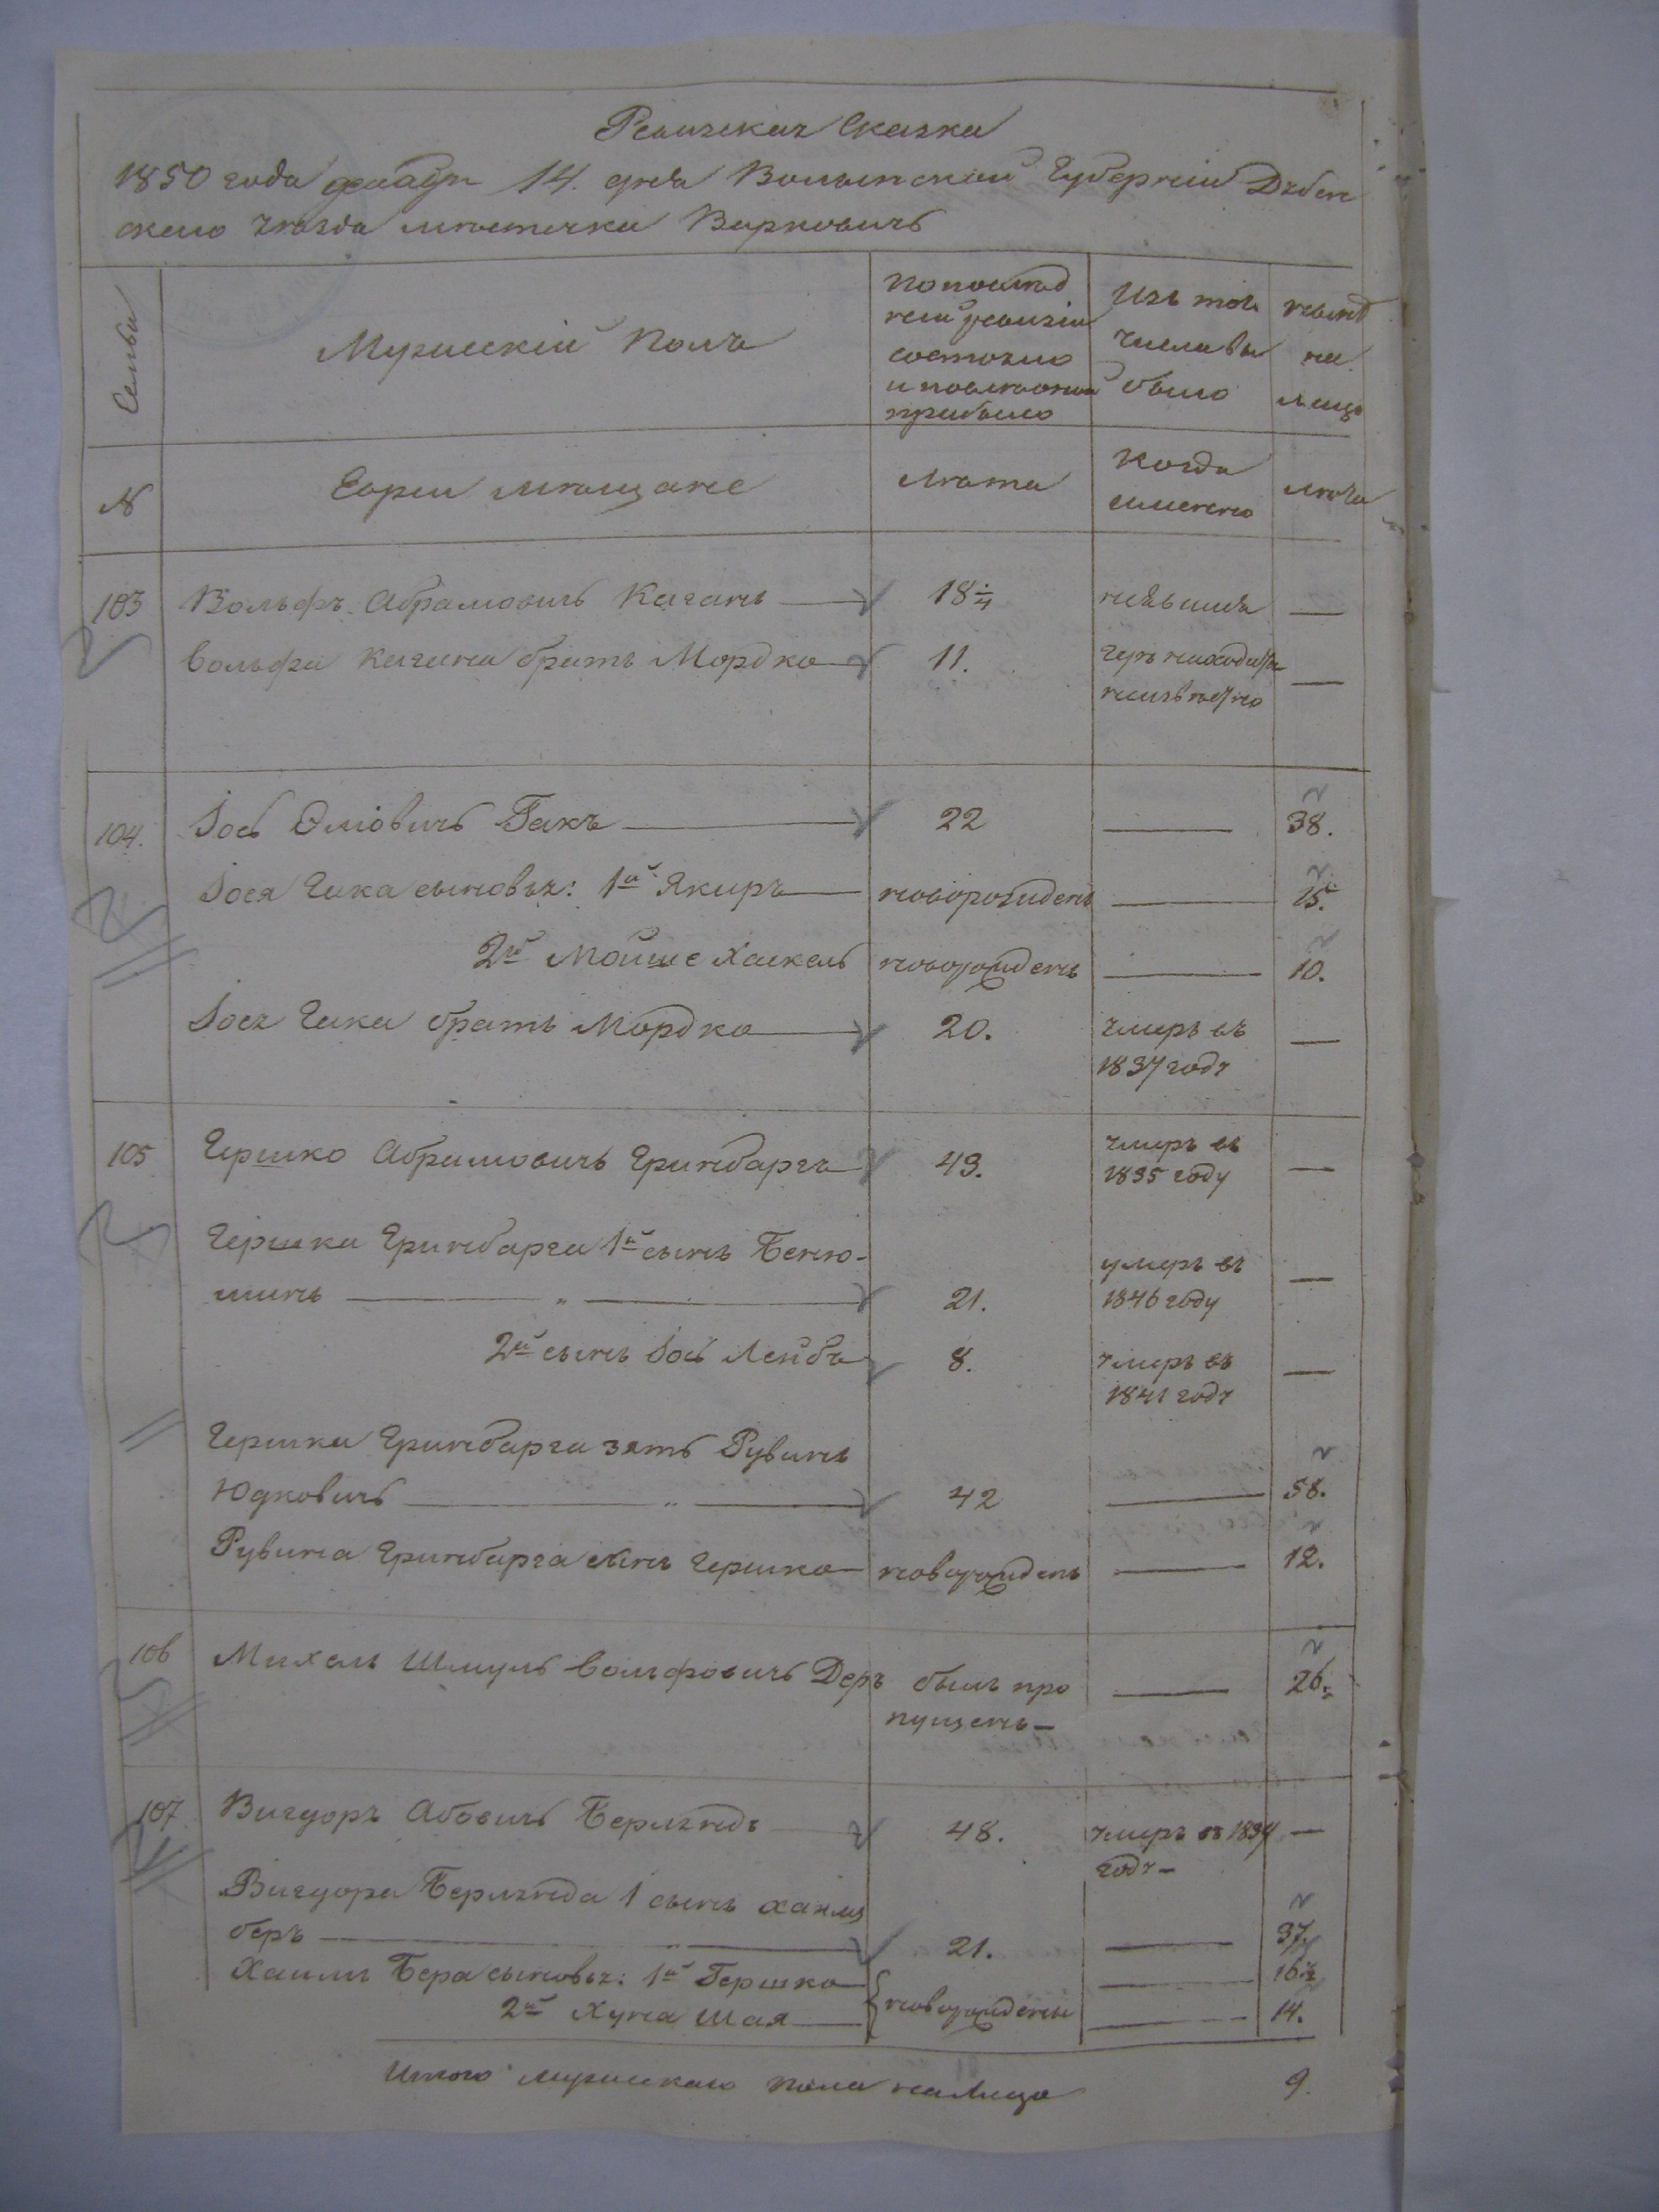 Ревизская Сказка
1850 года декабря 14. дня Волынской Губерніи Дубен
скаго уѣзда мѣстечка Варковичь
Семьи
Мужескій Полъ
По послѣд
ней ревизіи
состояло
и послѣ оной
прибыло
Изъ того
числа вы
было
нынѣ
на
лицо
№
Евреи мѣщане
лѣта
Когда
именно
лѣта
103 Вольфъ Абрамовичь Каганъ 18 1/4 неявился —
Вольфа Кагана братъ Мордко 11. гдѣ находится —
неизвѣстно
104. Іось Еліовичь Гакъ 22 — 38.
Іося Гака сыновья: 1й Якиръ новорожденъ — 15.
2й Мойше Хаскель новорожденъ — 10.
Іося Гака братъ Мордко 20. умеръ въ —
1837 году
105 Гершко Абрамовичь Гринбаргъ 49. умеръ въ —
1835 году
Гершка Гринбарга 1й сынъ Беню-
минъ — „ — 21. умеръ въ —
1846 году
2й сынъ Іось Лейбъ 8. умеръ въ —
1841 году
Гершка Гринбарга зять Рувинъ
Юдковичь — „ — 42 — 58.
Рувина Гринбарга сынъ Гершко новорожденъ — 12.
106 Михель Шмуль Вольфовичь Деръ былъ про — 26.
пущенъ —
107 Вигдоръ Абовичь 48. умеръ въ 1834 —
году —
Вигдора 1 сынъ Хаимъ
беръ — „ — 21. — 37.
Хаимъ Бера сыновья: 1й Гершко новорождены — 16 1/2
2й Хуна Шая — 14.
Итого мужескаго пола налицо 9.